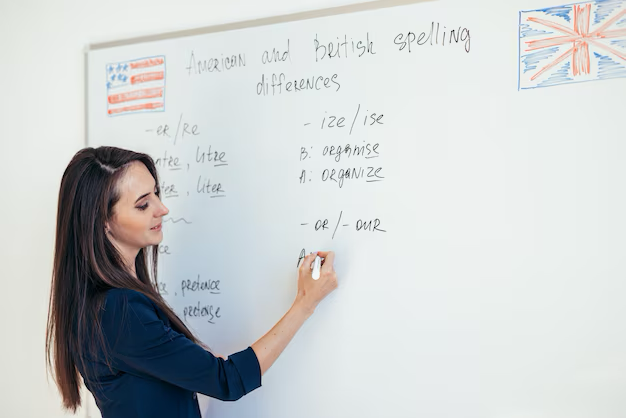 American and British spelling
differences
-er/re
ntre, litre
ter, liter
, pretence
pretense
- ize/ise
B: organise
A: organize
- or/-our
A